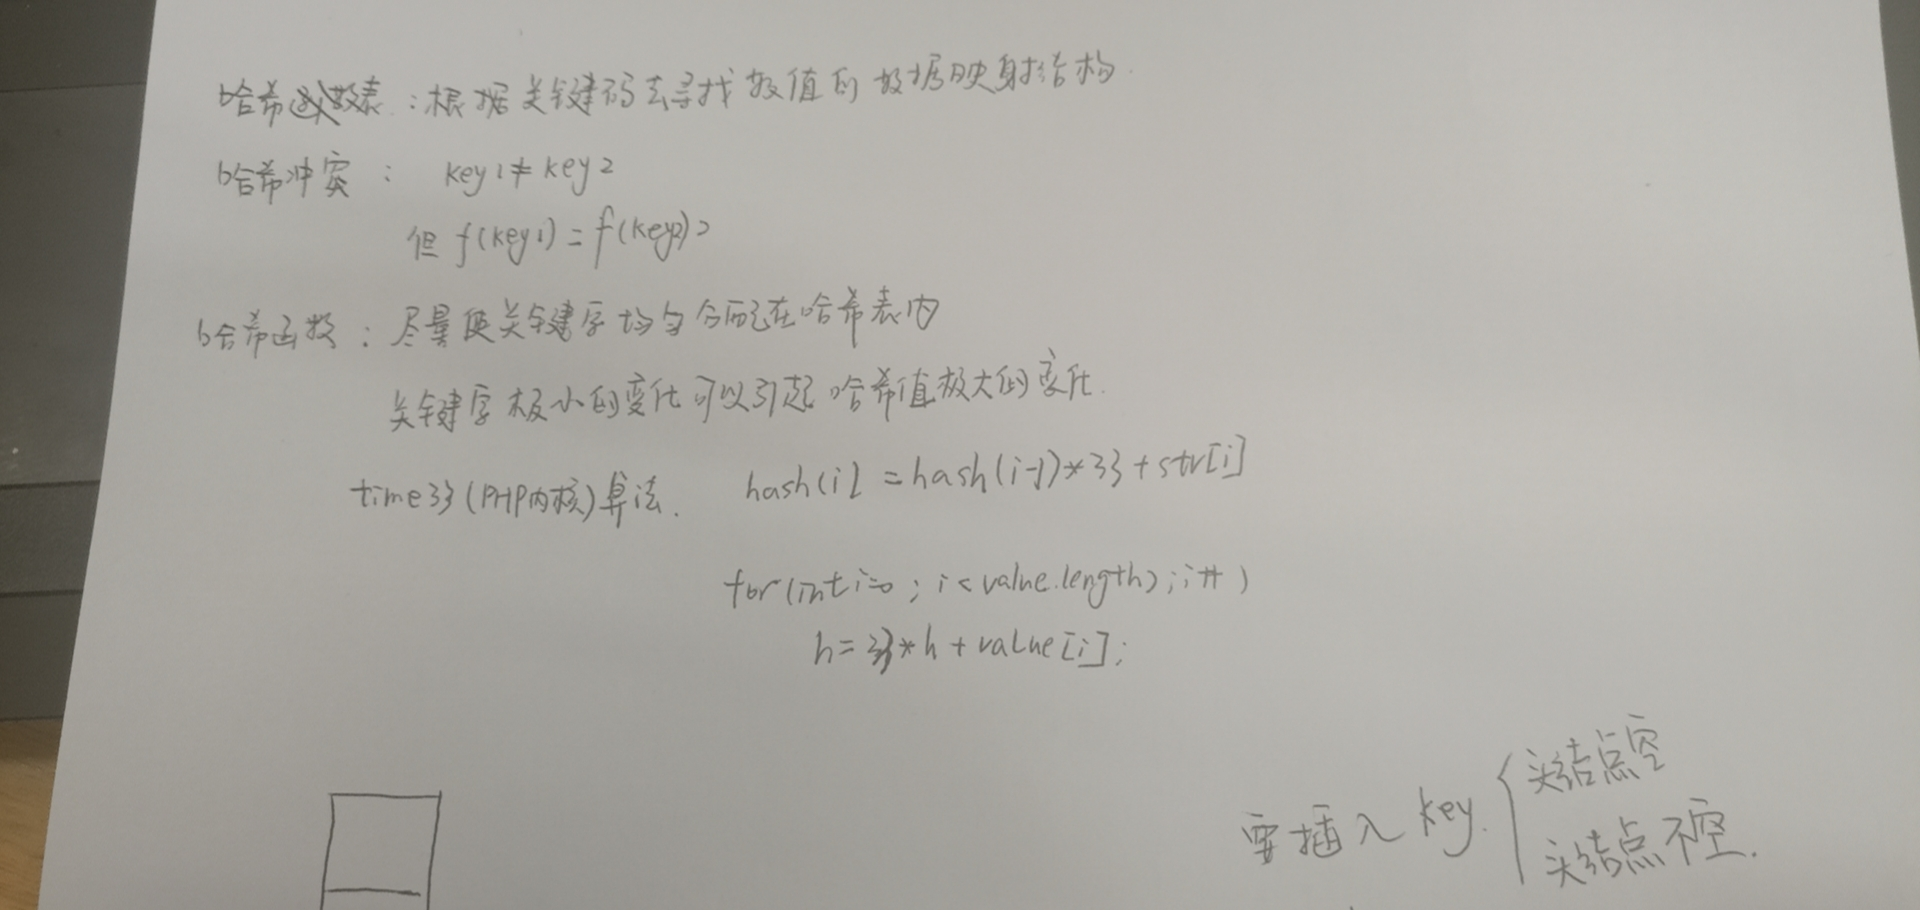 哈希表：根据关键码去寻找数值的数据映射结构.
哈希冲突： key1≠key2
但 f(key1) = f(key2)
哈希函数：尽量使关键字均匀分配在哈希表内
关键字极小的变化可以引起哈希值极大的变化.
time33(PHP内核)算法. hash(i) = hash(i-1)*33 + str[i]
for(int i=0; i<value.length); i++)
h = 33*h + value[i];
要插入key. { 头结点空
头结点不空.